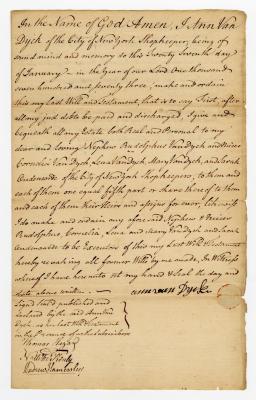 In the Name of God Amen, I Ann Van
Dyck of the City of New York Shopkeeper, being of
sound mind and memory do this Twenty Seventh day
of January in the Year of our Lord One thousand
seven hundred and seventy three, make and ordain
this my last Will and Testament, that is to say First, after
all my just debts be paid and discharged, I give and
bequeath all my Estate both Real and Personal to my
dear and loving Nephew Rudolphus Van Dyck and Nieces
Cornelia Van Dyck, Lena Van Dyck, Mary Van Dyck, and
of the City of New York Shopkeepers, to them and
each of them one equal fifth part or share there of to them
and each of them their Heirs and assigns for ever, Likewise
I do make and ordain my aforesaid Nephew & Nieces
Rudolphus Cornelia, Lena and Mary Van Dyck and
to be Executors of this my Last Will & Testament
hereby revoking all former Wills by me made, In Witness
whereof I have hereunto set my hand & Seal the day and
date above written
Signed Sealed published and
declared by the said Ann Van
Dyck, as her last Will & Testament
in the Presence of us the Subscribers
Thomas
Andrew